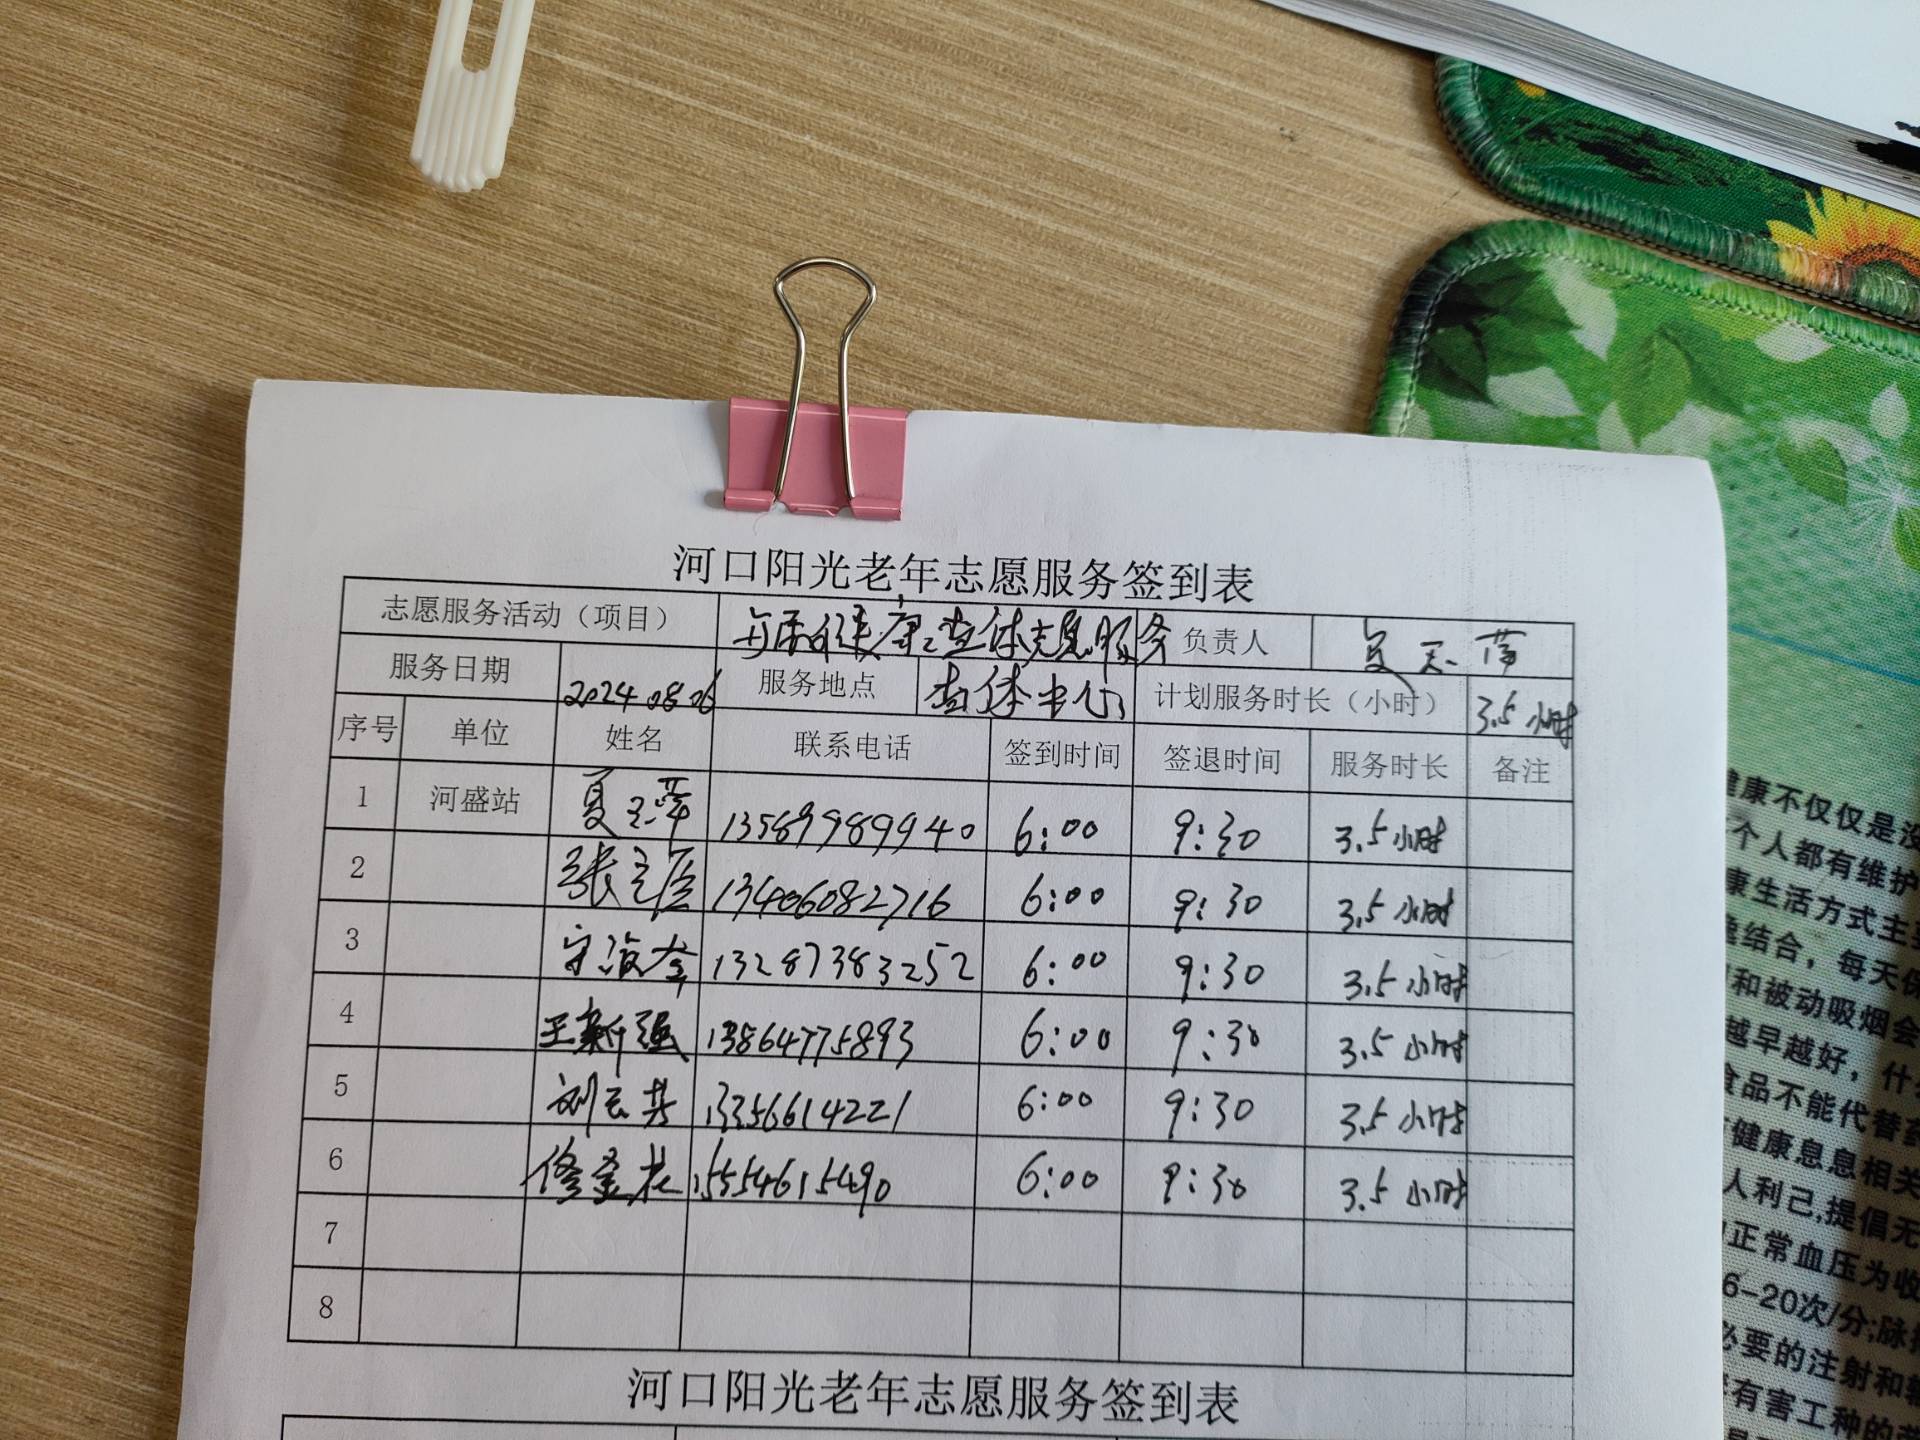 河口阳光老年志愿服务签到表
志愿服务活动（项目） 与 健康查体志愿服务 负责人 夏
服务日期 2024.08.06 服务地点 查体中心 计划服务时长（小时） 3.5小时
序号 单位 姓名 联系电话 签到时间 签退时间 服务时长 备注
1 河盛站 夏 13589989940 6:00 9:30 3.5小时
2 张 13406082716 6:00 9:30 3.5小时
3 13287383252 6:00 9:30 3.5小时
4 王新强 13864775893 6:00 9:30 3.5小时
5 刘云芸 13356614221 6:00 9:30 3.5小时
6 15554615490 6:00 9:30 3.5小时
7
8
河口阳光老年志愿服务签到表
健康不仅仅是没
个人都有维护
康生活方式主要
结合，每天保
和被动吸烟会
越早越好，什
食品不能代替药
健康息息相关
人利己,提倡无
正常血压为收
6-20次/分;脉搏
必要的注射和输
有害工种的劳